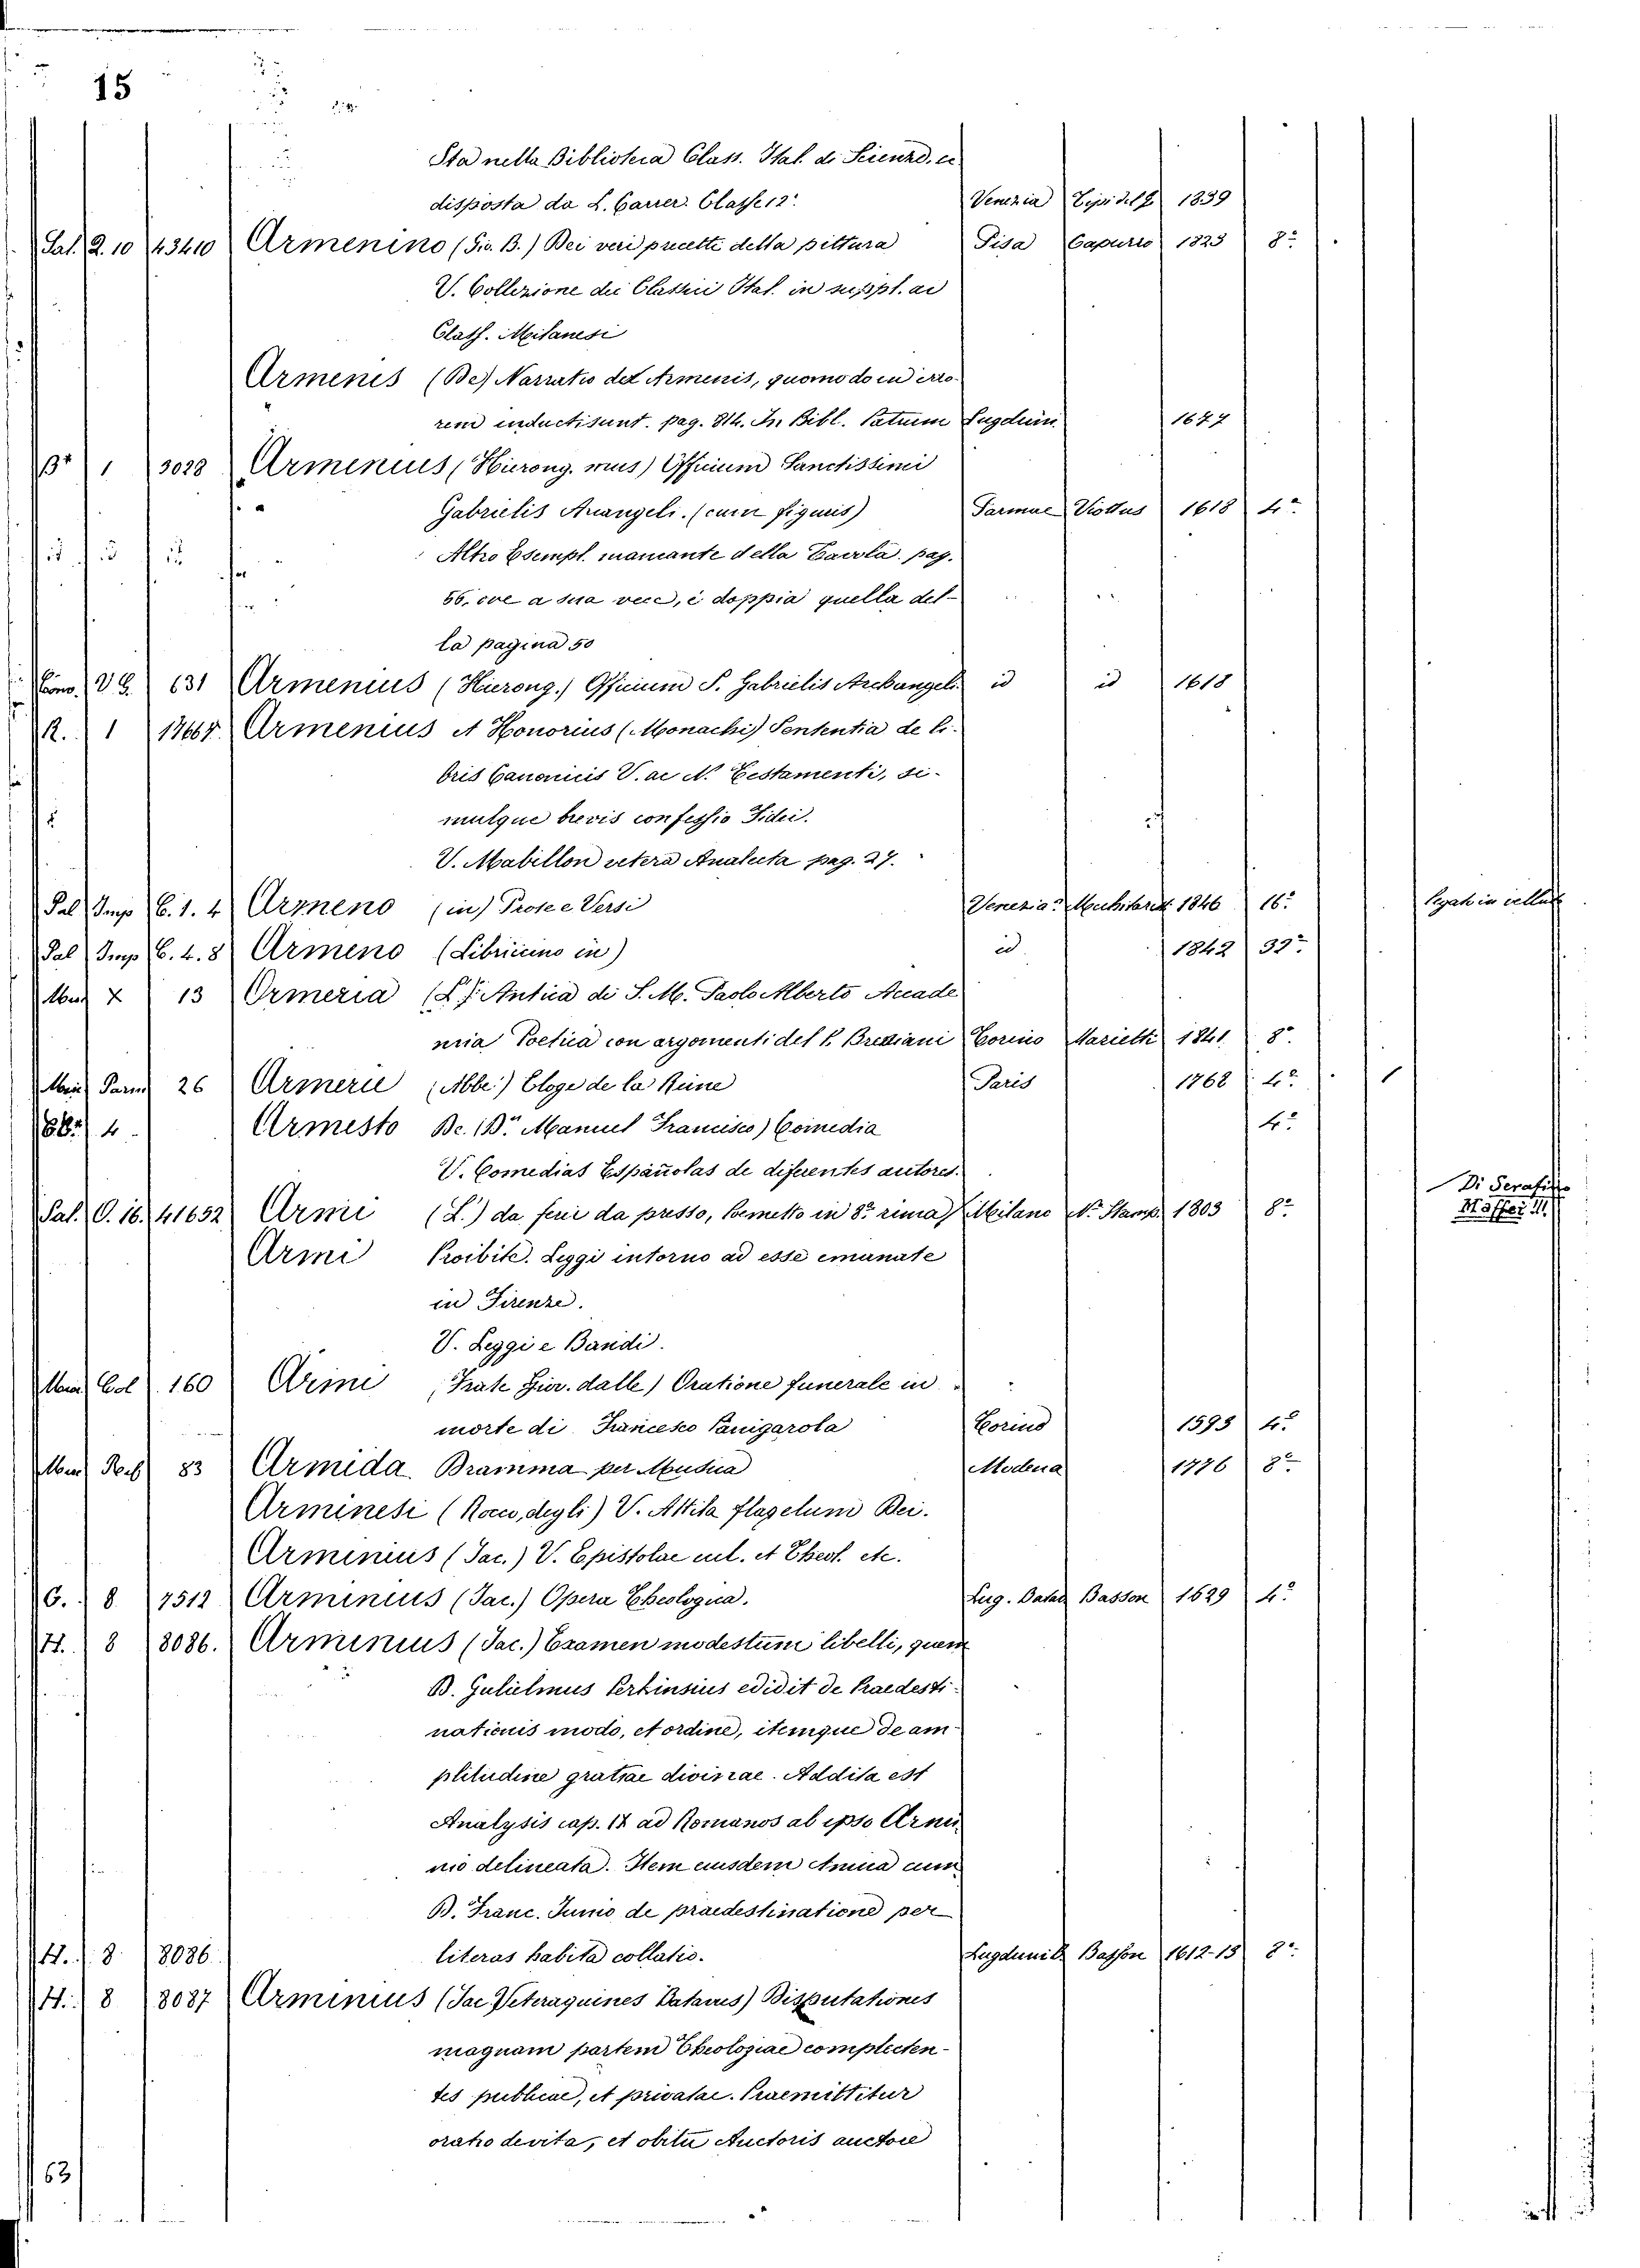 15
Sta nella Biblioteca Class. Ital. di Scienze, ec
disposta da L. Carrer. Classe 12. Venezia Tipi del G 1839
Sal. Q. 10 43410 Armenino (Gio. B.) Dei veri precetti della pittura Pisa Capurro 1823 8º
V. Collezione dei Classici Ital. in suppl. ai
Class. Milanesi
Armenis (De) Narratio de Armenis, quomodo in erro-
rem inducti sunt. pag. 814. In Bibl. Patrum Lugduni 1677
1 3028 Armenius (Hierony. mus) Officium Sanctissimi
Gabrielis Arcangeli. (cum figuris) Parmae Viottus 1618 4º
Altro Esempl. mancante della Tavola pag.
56, ove a sua vece, è doppia quella del-
la pagina 50
V G. 631 Armenius (Hierong.) Officium S. Gabrielis Archangeli id id 1618
R. 1 Armenius et Honorius (Monachi) Sententia de li-
bris Canonicis V. ac N. Testamenti, si-
mulque brevis confessio Fidei.
V. Mabillon vetera Analecta pag. 27.
Pal Imp C. 1. 4 Armeno (in) Prose e Versi Venezia 1846 16º Legato in
Pal Imp C. 4. 8 Armeno (Libriccino in) id 1842 32º
13 Ormeria (L') Antica di S. M. Carlo Alberto Accade
mia Poetica con argomenti del P. Torino Marietti 1841 8º
Parm 26 Armerie (Abbé) Eloge de la Reine Paris 1768 4º 1
4 Armesto De. (Dⁿ Manuel Francisco) Comedia 4º
V. Comedias Españolas de diferentes autores.
Sal. O. 16. 41652 Armi (L') da feu da presto, Poemetto in 8ª rima Milano Nº Stamp. 1803 8º Di Serafino Maffei M.
Armi Proibite. Leggi intorno ad esse emanate
in Firenze.
V. Leggi e Bandi.
Misc Col 160 Arimi (Frate Gir. dalle) Oratione funerale in
morte di Francesco Panigarola Torino 1595 4º
83 Armida. Dramma per Musica Modena 1776 8º
Arminesi (Rocco, degli) V. Attila flagelum Dei.
Arminius (Jac.) V. Epistolae eccl. et Theol. etc.
G. 8 7512 Arminius (Jac.) Opera Theologica. Lug. Batav Basson 1629 4º
H. 8 8086. Arminius (Jac.) Examen modestum libelli, quem
D. Gulielmus Perkinsius edidit de Praedesti-
nationis modo, et ordine, itemque de am-
plitudine gratiae divinae. Addita est
Analysis cap. IX ad Romanos ab ipso Armi
nio delineata. Item eiusdem Amica cum
D. Franc. Junio de praedestinatione per
H. 8 8086 literas habita collatio. Lugduni B. Basson 1612-13 8º
H. 8 8087 Arminius (Jac Veteraquines Batavus) Disputationes
magnam partem Theologiae complecten-
tes publicae, et privatae. Praemittitur
oratio de vita, et obitu Auctoris auctore
63